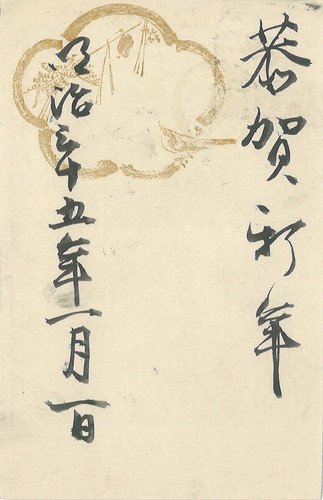 恭賀新年
明治三十五年一月一日